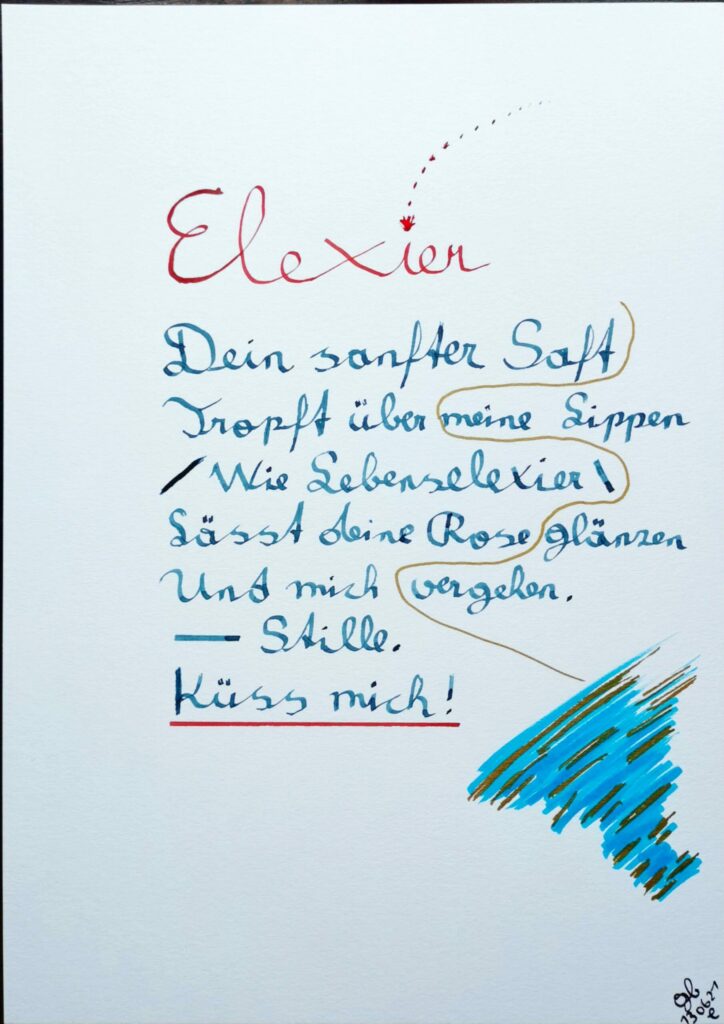 Elexier
Dein sanfter Saft
Tropft über meine Lippen
/ Wie Lebenselexier \
Lässt deine Rose glänzen
Und mich vergehen.
— Stille.
Küss mich!